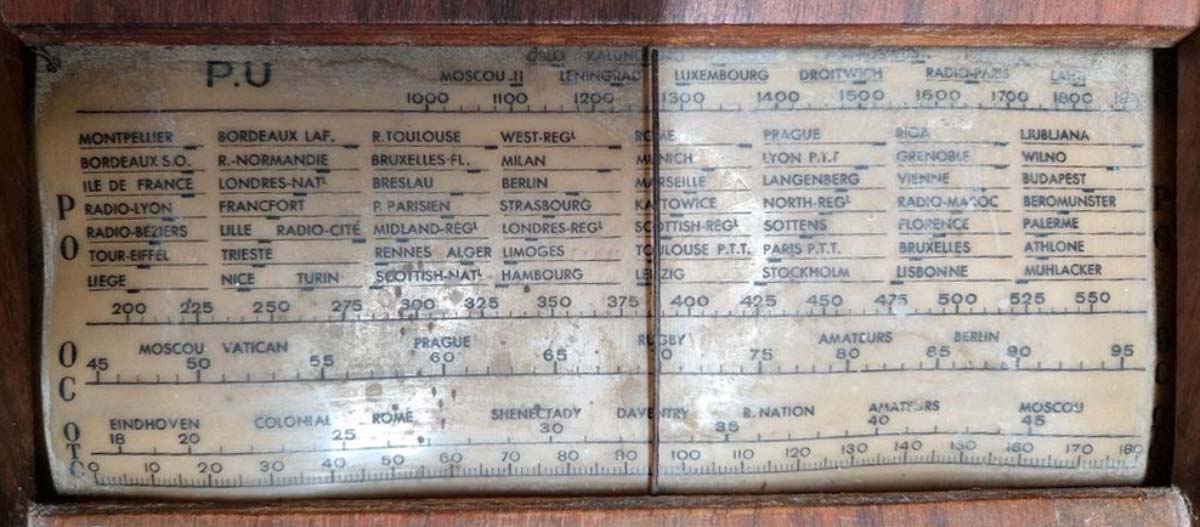 OSLO KALUNDBORG
P.U MOSCOU .II LENINGRAD LUXEMBOURG DROITWICH RADIO-PARIS LAHTI
1000 1100 1200 1300 1400 1500 1600 1700 1800
MONTPELLIER BORDEAUX LAF. R.TOULOUSE WEST-REGL ROME PRAGUE RIGA LJUBLJANA
BORDEAUX S.O. R.-NORMANDIE BRUXELLES-FL. MILAN MUNICH LYON P.T.T GRENOBLE WILNO
ILE DE FRANCE LONDRES-NATL BRESLAU BERLIN MARSEILLE LANGENBERG VIENNE BUDAPEST
PO RADIO-LYON FRANCFORT P. PARISIEN STRASBOURG KATTOWICE NORTH-REGL RADIO-MAROC BEROMUNSTER
RADIO-BÉZIERS LILLE RADIO-CITÉ MIDLAND-REGL LONDRES-REGL SCOTTISH-REGL SOTTENS FLORENCE PALERME
TOUR-EIFFEL TRIESTE RENNES ALGER LIMOGES TOULOUSE P.T.T. PARIS P.T.T. BRUXELLES ATHLONE
LIEGE NICE TURIN SCOTTISH-NATL HAMBOURG LEIPZIG STOCKHOLM LISBONNE MUHLACKER
200 225 250 275 300 325 350 375 400 425 450 475 500 525 550
OC MOSCOU VATICAN PRAGUE RUGBY AMATEURS BERLIN
45 50 55 60 65 70 75 80 85 90 95
OTC EINDHOVEN COLONIAL ROME SHENECTADY DAVENTRY R. NATION AMATEURS MOSCOU
18 20 25 30 35 40 45
0 10 20 30 40 50 60 70 80 90 100 110 120 130 140 150 160 170 180